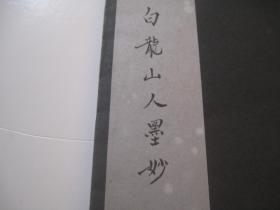 白龍山人墨妙